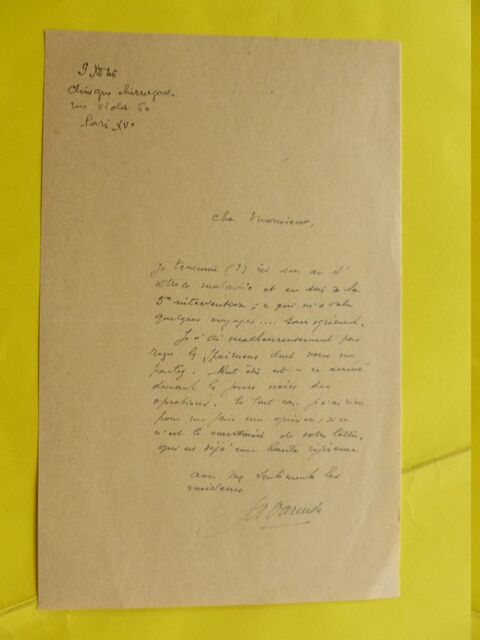 9 XII 46
Clinique chirurgicale
rue Violet 60
Paris XV
Cher Monsieur,
Je termine (?) ici un an d'
atroce maladie et en suis de la
5e intervention, ce qui m'a valu
quelques voyages.... sans agrément.
Je n'ai malheureusement pas
reçu les spécimens dont vous me
parlez. Peut être est-ce arrivé
durant les jours noirs des
opérations. En tout cas je n'ai rien
pour me faire une opinion, si ce
n'est la courtoisie de votre lettre,
qui est déjà une haute référence
avec mes sentiments les
meilleurs